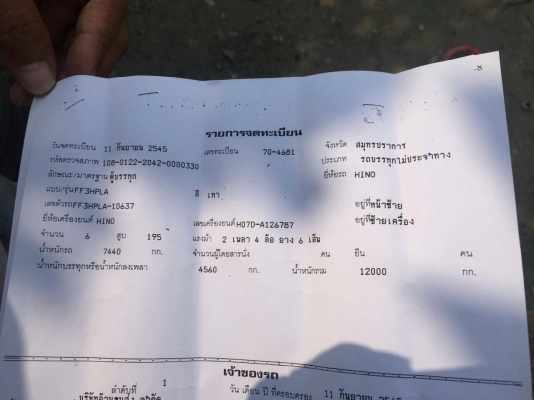 รายการจดทะเบียน
วันจดทะเบียน 11 กันยายน 2545 เลขทะเบียน 70-4681 จังหวัด สมุทรปราการ
รหัสตรวจสภาพ 108-0122-2042-0000330 ประเภท รถบรรทุกไม่ประจำทาง
ลักษณะ/มาตรฐาน ตู้บรรทุก ยี่ห้อรถ HINO
แบบ/รุ่น FF3HPLA สี เทา
เลขตัวรถ FF3HPLA-10637 อยู่ที่ หน้าซ้าย
ยี่ห้อเครื่องยนต์ HINO เลขเครื่องยนต์ H07D-A126787 อยู่ที่ ซ้ายเครื่อง
จำนวน 6 สูบ 195 แรงม้า 2 เพลา 4 ล้อ ยาง 6 เส้น
น้ำหนักรถ 7440 กก. จำนวนผู้โดยสารนั่ง คน ยืน คน
น้ำหนักบรรทุกหรือน้ำหนักลงเพลา 4560 กก. น้ำหนักรวม 12000 กก.
เจ้าของรถ
ลำดับที่ 1 วัน เดือน ปี ที่ครอบครอง 11 กันยายน 2545